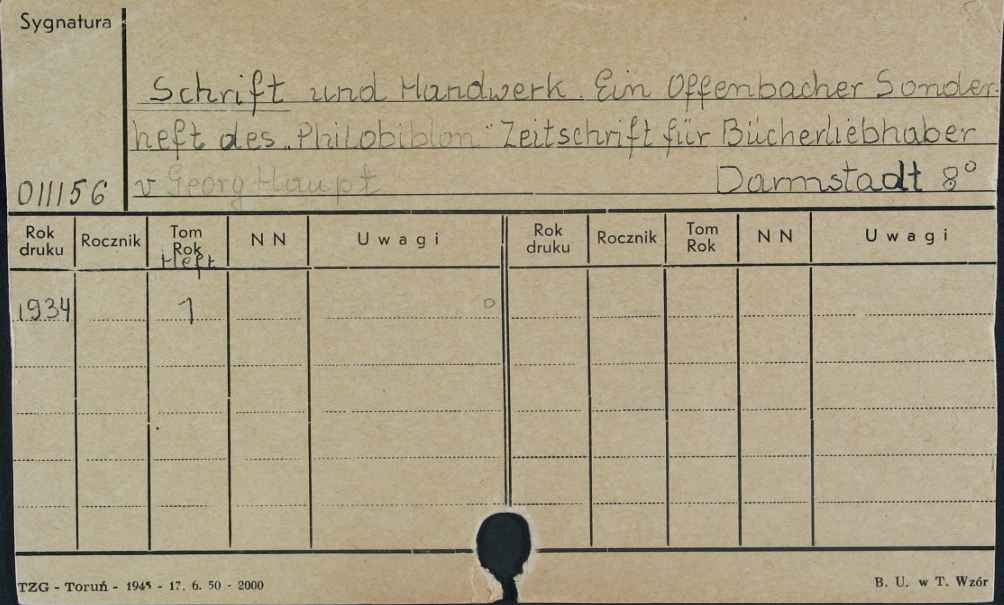 Sygnatura
Schrift und Handwerk. Ein Offenbacher Sonder-
heft des „Philobiblon" Zeitschrift für Bücherliebhaber
011156 v Georg Haupt Darmstadt 8°
Rok druku Rocznik Tom Rok Heft N N Uwagi Rok druku Rocznik Tom Rok N N Uwagi
1934 1
TZG - Toruń - 1945 - 17. 6. 50 - 2000 B. U. w T. Wzór